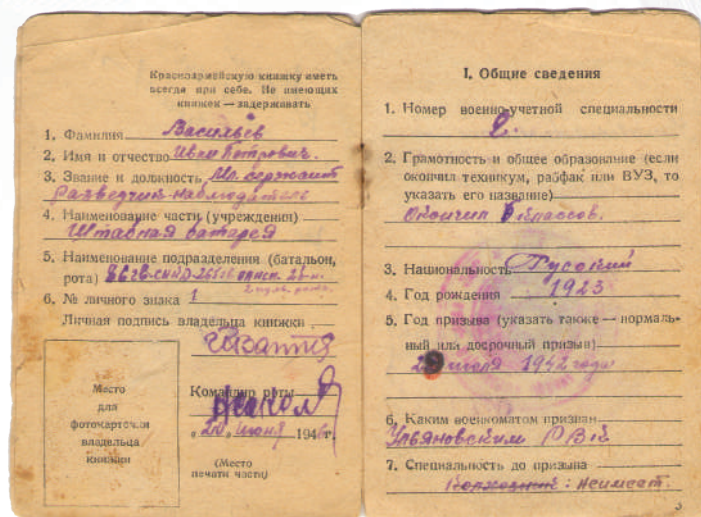 Красноармейскую книжку иметь
всегда при себе. Не имеющих
книжек — задерживать
1. Фамилия Васильев
2. Имя и отчество Иван Петрович.
3. Звание и должность Мл. сержант
Разведчик-наблюдатель
4. Наименование части (учреждения)
Штабная батарея
5. Наименование подразделения (батальон,
рота)
6. № личного знака 1
Личная подпись владельца книжки
Место
для
фотокарточки
владельца
книжки
Командир роты
„20„ июня 194 г.
(Место
печати части)
I. Общие сведения
1. Номер военно-учетной специальности
2. Грамотность и общее образование (если
окончил техникум, рабфак или ВУЗ, то
указать его название)
Окончил классов.
3. Национальность Русский
4. Год рождения 1923
5. Год призыва (указать также — нормаль-
ный или досрочный призыв)
1942 года
6. Каким военкоматом призван
Ульяновским
7. Специальность до призыва
3